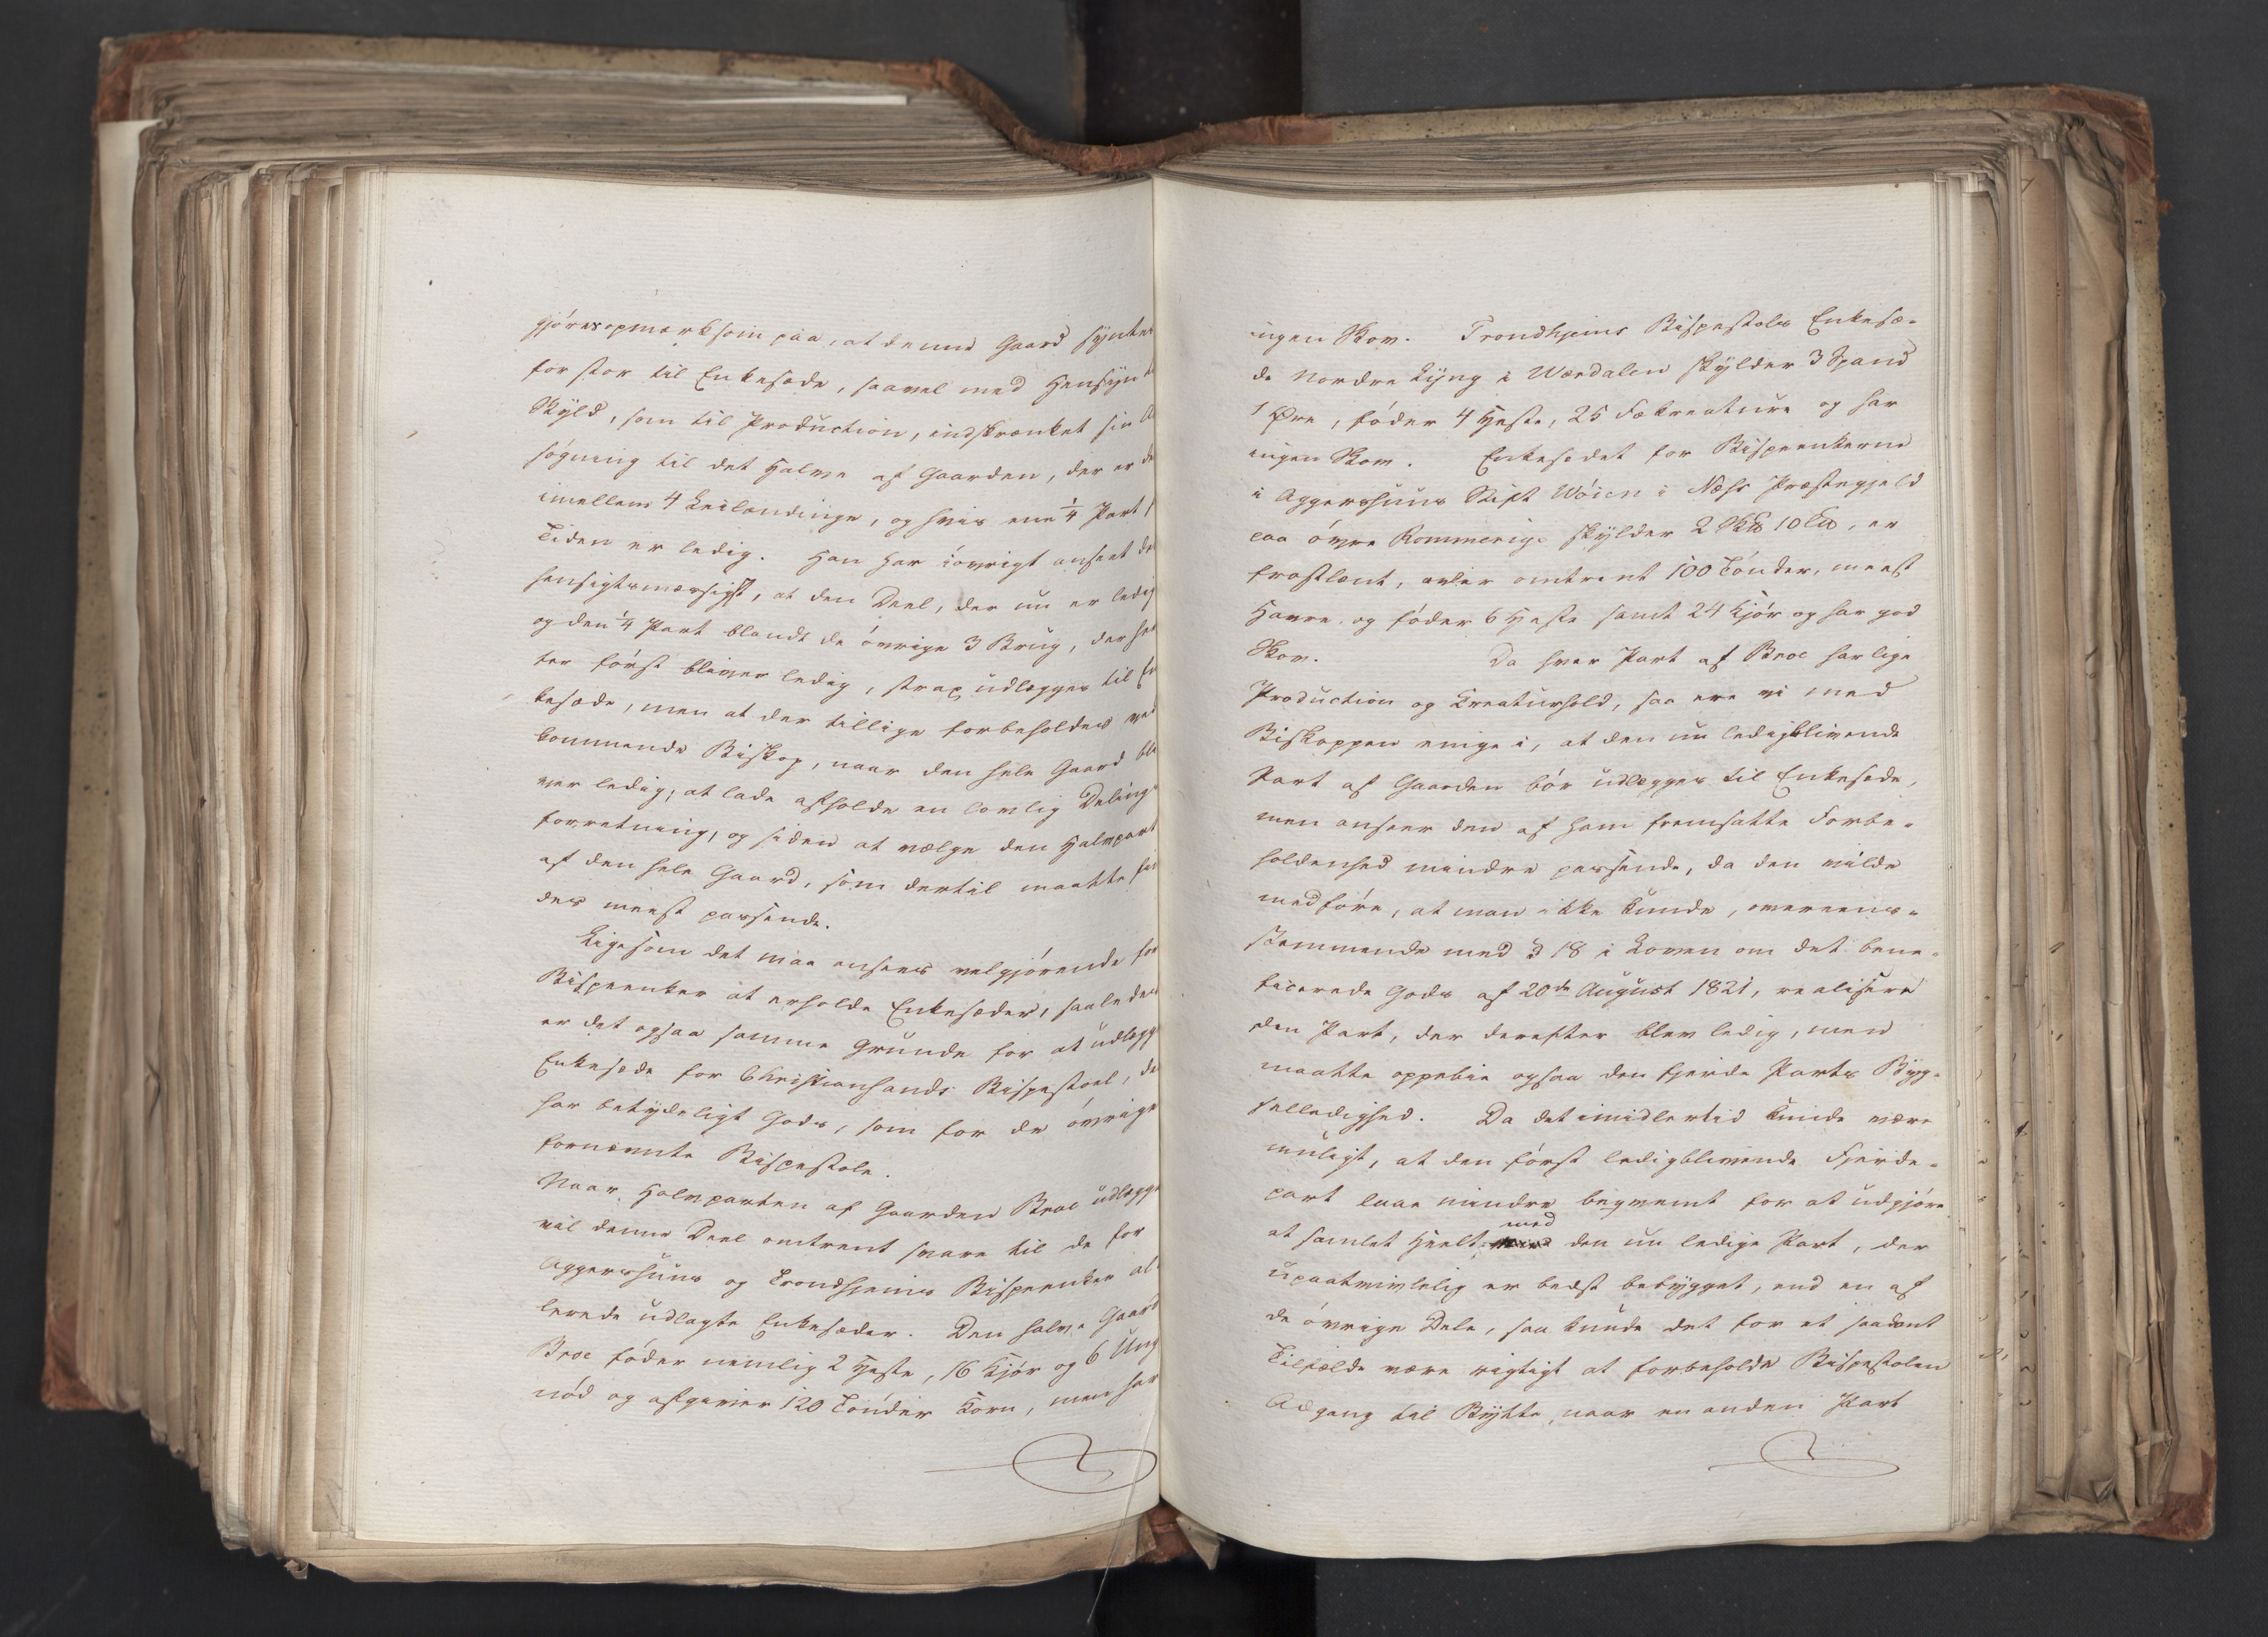 gjöres opmærksom paa, at denne Gaard syntes
for stor til Enkesæde, saavel med Hensyn t
Skyld, som til Production, indskrænket sin A
søgning til det Halve af Gaarden, der er de
imellem 4 Leilændinge, og hvis ene ¼ Part f
Tiden er ledig. Han har iøvrigt anseet de
hensigtsmæssigst, at den Deel, der nu er ledig
og den ¼ Part blandt de øvrige 3 Brug, der her
ter først bliver ledig, strax udlægges til En
kesæde, men at der tillige forbeholdes ved
kommende Biskop, naar den hele Gaard bli
ver ledig, at lade afholde en lovlig Delings
forretning, og siden at vælge den Halvpart
af den hele Gaard, som dertil maatte fin
des meest passende.
Ligesom det maa ansees velgjørende for
Bispeenker at erholde Enkesæder, saaledes
er det ogsaa samme Grunde for at udlægge
Enkesæde for Christiansands Bispestoel, de
har betydeligt Gods, som for de øvrige
fornævnte Bispestole.
Naar Halvparten af Gaarden Broe udlægge
vil denne Deel omtrent svare til de for
Aggershuus og Trondhjems Bispeenker al-
lerede udlagte Enkesæder. Den halve Gaard
Broe føder nemlig 2 Heste, 16 Kjør og 6 Ung
nød og afgiver 120 Tønder Korn, men har
ingen Skov. Trondhjems Bispestols Enkesæ-
de Nordre Lyng i Værdalen skylder 3 Spand
1 Øre, føder 4 Heste, 25 Fækreature og har
ingen Skov. Enkesædet for Bispeenkerne
i Aggershuus Stift Wöien i Næss Præstegjeld
paa øvre Rommerige skylder 2 Sk℔ 10 L℔, er
frostlænt, avler omtrent 100 Tønder, meest
Havre, og føder 6 Heste samt 24 Kjør og har god
Skov. Da hver Part af Broe har lige
Production og Kreaturhold, saa ere vi med
Biskoppen enige i, at den nu ledigblivende
Part af Gaarden bør udlægges til Enkesæde,
men anseer den af ham fremsatte Forbe-
holdenhed mindre passende, da den vilde
medføre, at man ikke kunde, overeens-
stemmende med § 18 i Loven om det bene-
ficerede Gods af 20de August 1821, realisere
den Part, der derefter blev ledig, men
maatte oppebie ogsaa den fjerde Parts Byg-
selledighed. Da det imidlertid kunde være
muligt, at den først ledigblivende Fjerde-
part laae mindre beqvemt for at udgjøre
at samlet Heelt med den nu ledige Part, der
upaatvivlelig er bedst bebygget, end en af
de øvrige Dele, saa kunde det for et saadant
Tilfælde være rigtigt at forbeholde Bispestolen
Adgang til Bytte, naar en anden Part